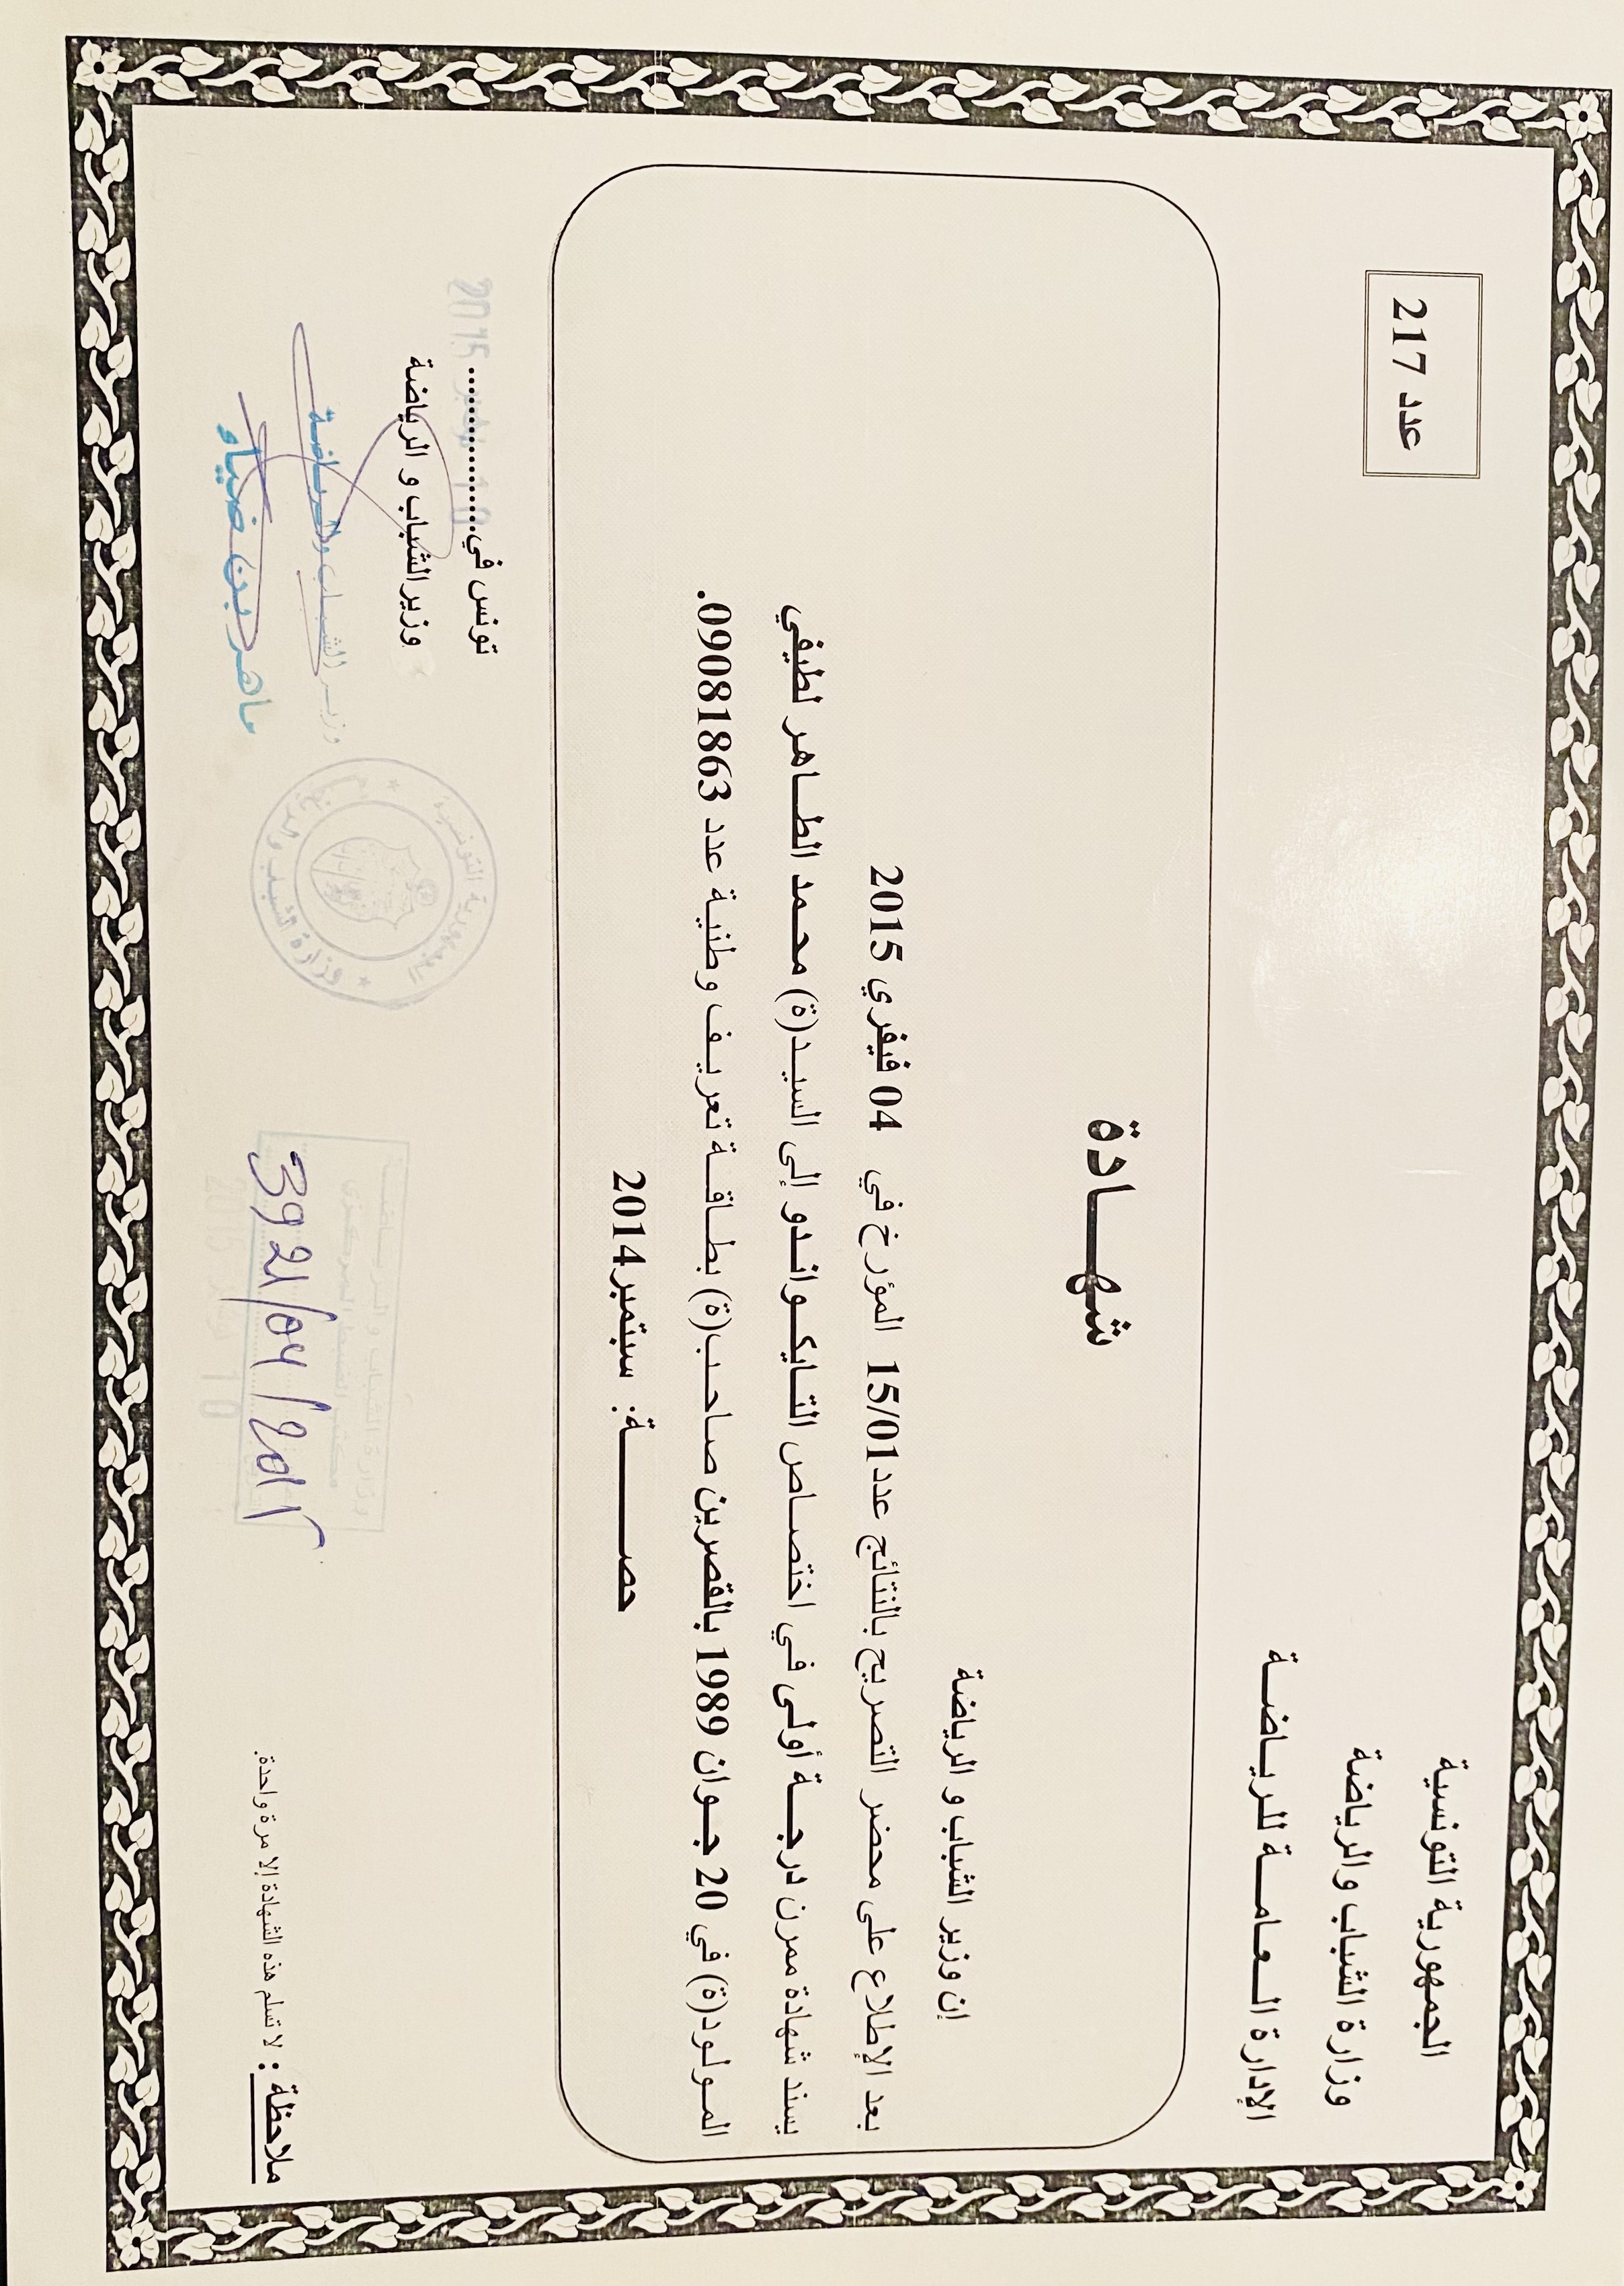 الجمهورية التونسية
وزارة الشباب والرياضة
الإدارة العامة للرياضة
عدد 217
شهادة
إن وزير الشباب و الرياضة
بعد الإطلاع على محضر التصريح بالنتائج عدد 15/01 المؤرخ في 04 فيفري 2015
يسند شهادة ممرن درجة أولى في اختصاص التايكواندو إلى السيد(ة) محمد الطاهر لطيفي
المولود(ة) في 20 جوان 1989 بالقصرين صاحب(ة) بطاقة تعريف وطنية عدد 09081863.
حصة: سبتمبر 2014
تونس في
10 2015
وزير الشباب و الرياضة
وزير الشباب والرياضة
ماهر بن ضياء
الجمهورية التونسية
وزارة الشباب والرياضة
وزارة الشباب والرياضة
مكتب الضبط المركزي
10 2015
3921/04/201
ملاحظة : لا تسلم هذه الشهادة إلا مرة واحدة.